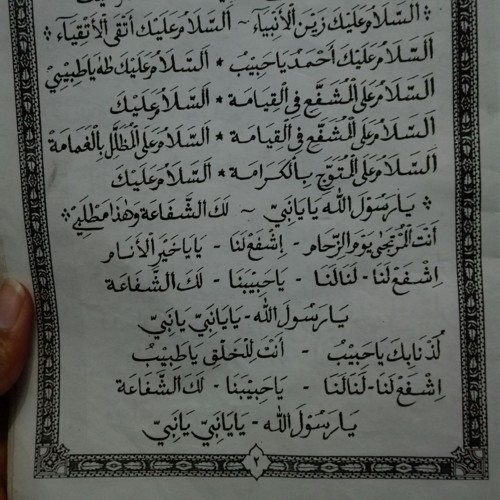 اَلسَّلَامُ عَلَيْكَ زَيْنَ الْأَنْبِيَاءِ ~ اَلسَّلَامُ عَلَيْكَ أَتْقَى الْأَتْقِيَاءِ
اَلسَّلَامُ عَلَيْكَ أَحْمَدُ يَا حَبِيْبُ * اَلسَّلَامُ عَلَيْكَ طٰهٰ يَا طَبِيْبِيْ
اَلسَّلَامُ عَلَى الْمُشَفَّعِ فِى الْقِيَامَةِ * اَلسَّلَامُ عَلَيْكَ
اَلسَّلَامُ عَلَى الْمُشَفَّعِ فِى الْقِيَامَةِ * اَلسَّلَامُ عَلَى الْمُظَلَّلِ بِالْغَمَامَةِ
اَلسَّلَامُ عَلَى الْمُتَوَّجِ بِالْكَرَامَةِ * اَلسَّلَامُ عَلَيْكَ
يَا رَسُوْلَ اللهِ يَا يَا نَبِيّ ~ لَكَ الشَّفَاعَةُ وَهٰذَا مَطْلَبِيْ
أَنْتَ الْمُرْتَجٰى يَوْمَ الزِّحَامِ - إِشْفَعْ لَنَا - يَا يَا خَيْرَ الْأَنَامِ
اِشْفَعْ لَنَا - لَنَا لَنَا - يَا حَبِيْبَنَا - لَكَ الشَّفَاعَةُ
يَا رَسُوْلَ اللهِ - يَا يَا نَبِيّ يَا نَبِيّ
لُذْنَا بِكَ يَا حَبِيْبُ - أَنْتَ لِلْخَلْقِ يَا طَبِيْبُ
اِشْفَعْ لَنَا - لَنَا لَنَا - يَا حَبِيْبَنَا - لَكَ الشَّفَاعَةُ
يَا رَسُوْلَ اللهِ - يَا يَا نَبِيّ يَا نَبِيّ
٢